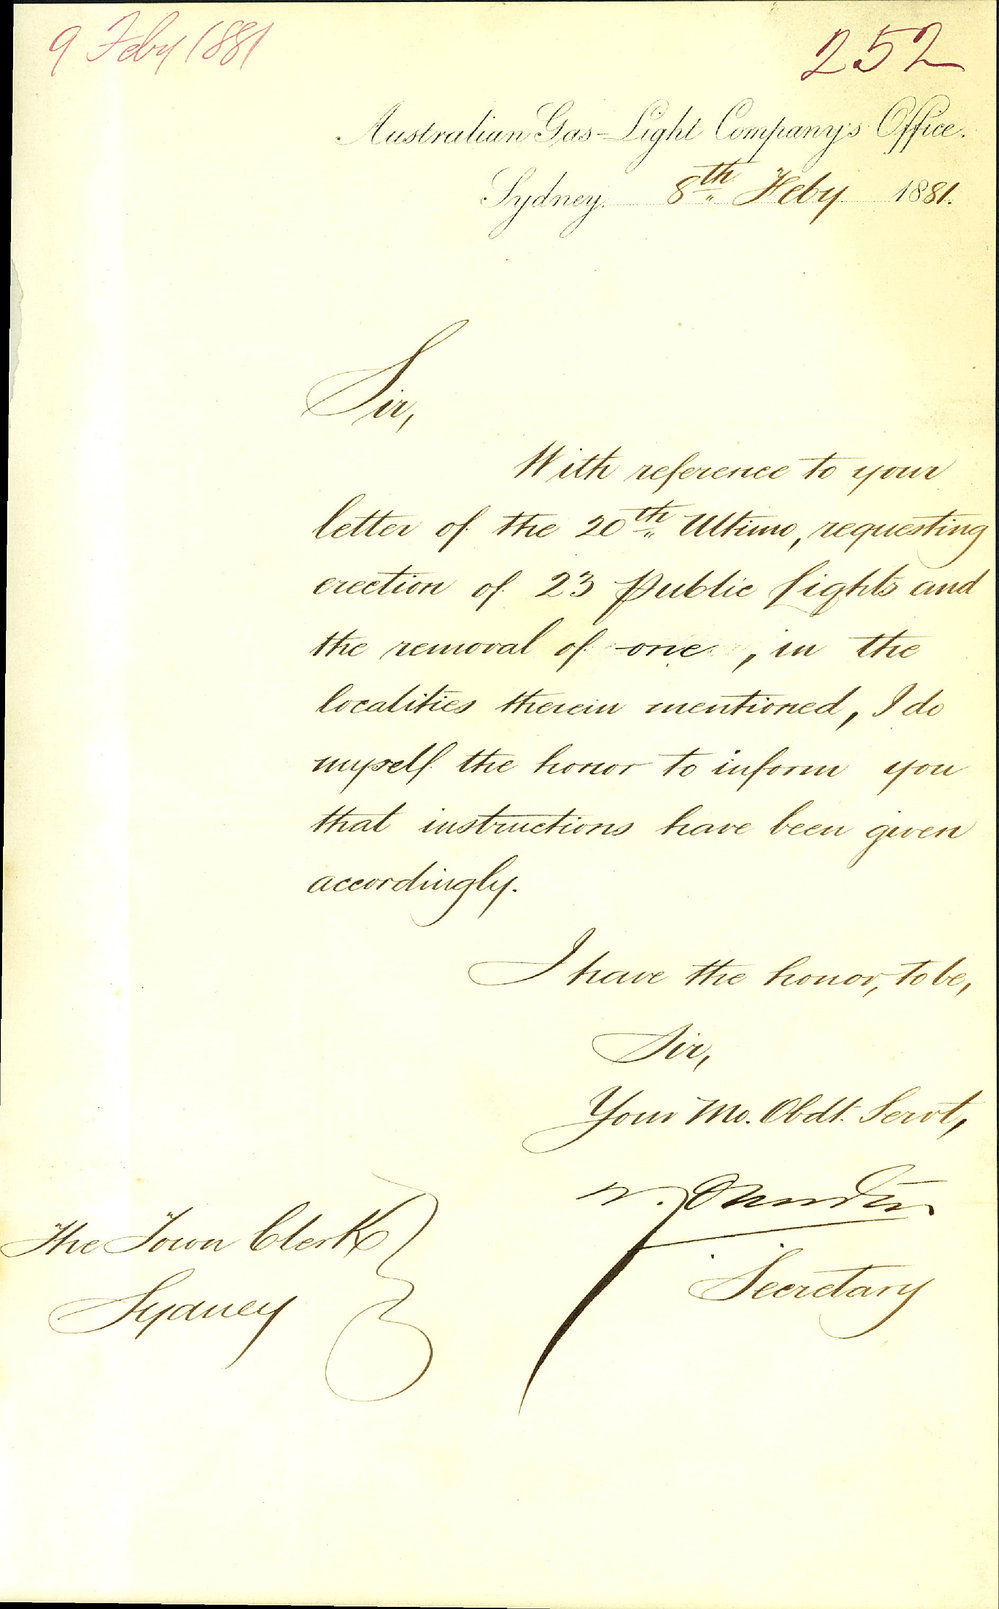 9 Feby 1881
252
Australian Gas-Light Company's Office.
Sydney. 8th Feby 1881.
Sir,
With reference to your
letter of the 20th Ultimo, requesting
erection of 23 Public lights and
the removal of one, in the
localities therein mentioned, I do
myself the honor to inform you
that instructions have been given
accordingly.
I have the honor, to be,
Sir,
Your Mo. Obdt. Servt,
Secretary
The Town Clerk
Sydney